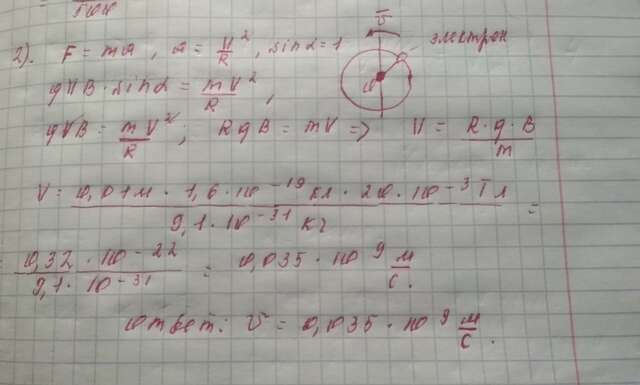 2). F = ma , a = V²/R , sin α = 1
v̄
электрон
qVB · sin α = mV²/R ,
qVB = mV²/R ; RqB = mV => V = R · q · B / m
V = 0,01м · 1,6 · 10⁻¹⁹ Кл · 20 · 10⁻³ Тл / 9,1 · 10⁻³¹ кг =
0,32 · 10⁻²² / 9,1 · 10⁻³¹ = 0,035 · 10⁹ м/с.
Ответ: V = 0,035 · 10⁹ м/с.